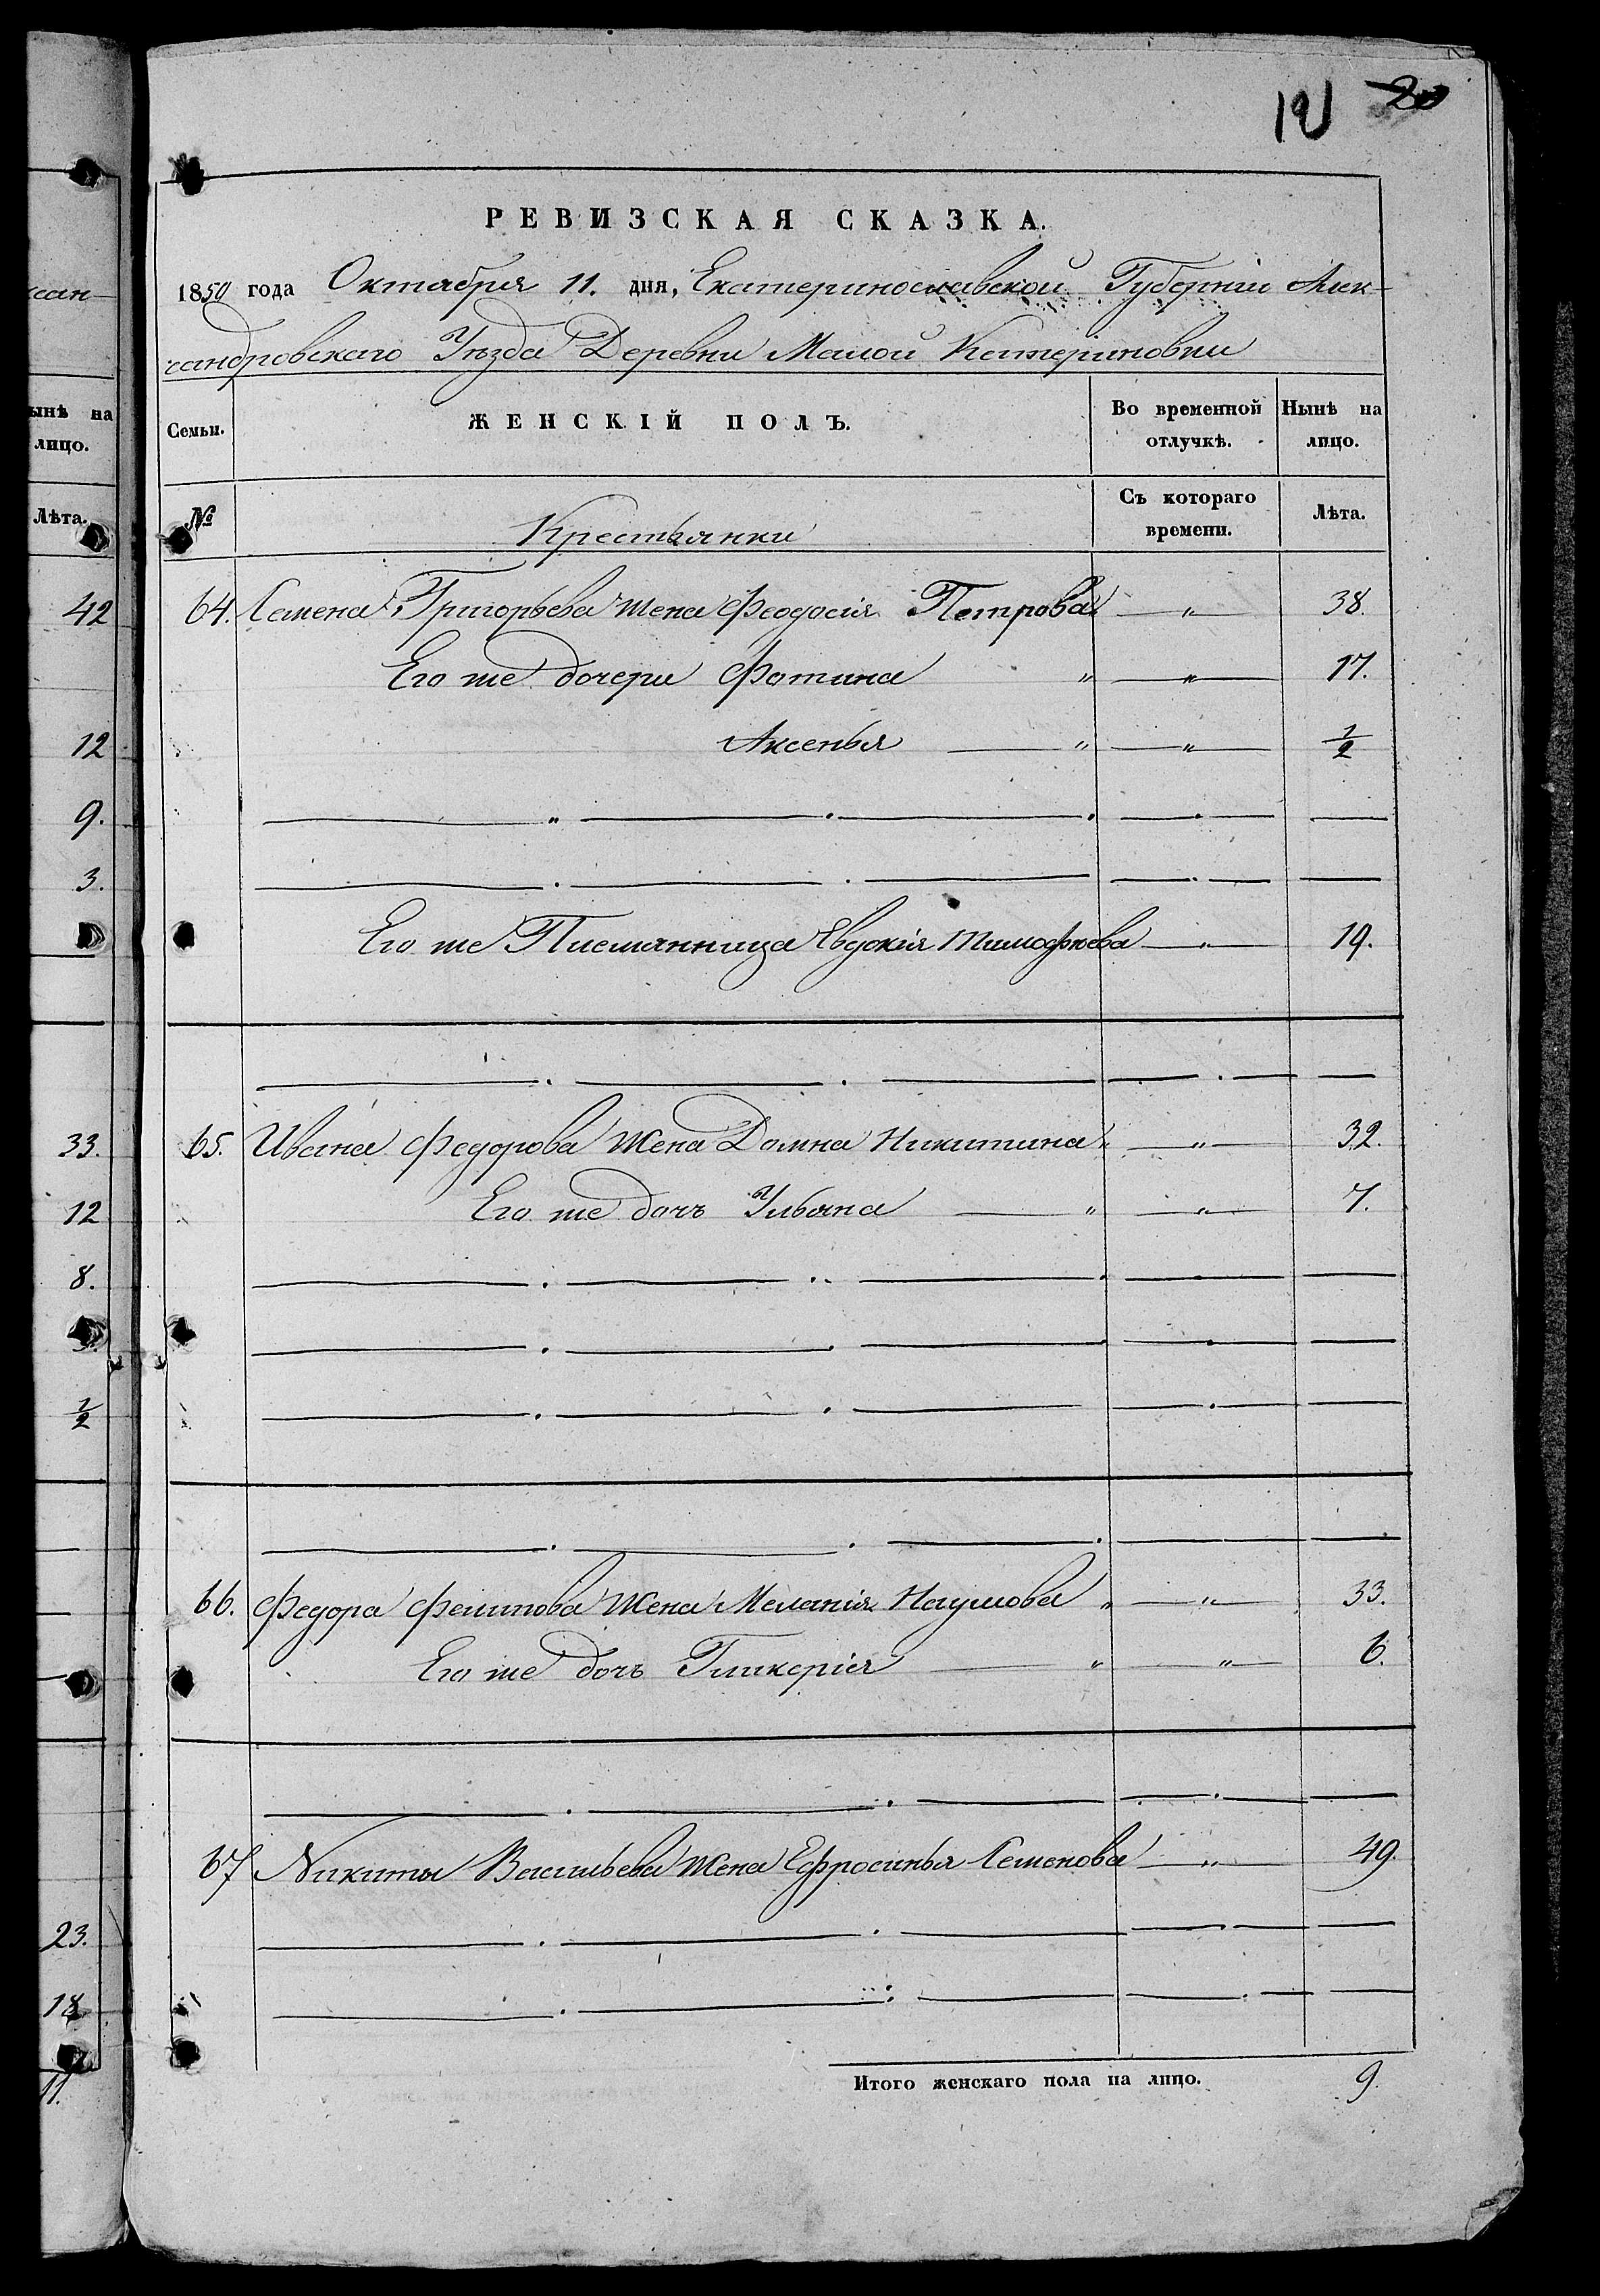 19 20
РЕВИЗСКАЯ СКАЗКА.
1850 года Октября 11. дня, Екатеринославской Губерніи Алек-
сандровскаго Уѣзда Деревни Малой Катериновки
Семьи. ЖЕНСКІЙ ПОЛЪ. Во временной отлучкѣ. Нынѣ на лицо.
№ Крестьянки Съ котораго времени. Лѣта.
64. Семена Григорьева жена Феодосія Петрова " 38.
Его же дочери Фотина " " 17.
Аксенья " " 1/2
Его же Племянница Евдокія Тимофѣева " 19.
65. Ивана Федорова жена Домна Никитина " " 32.
Его же дочь Ульяна " " 7.
66. Федора Филипова жена Меланія Наумова " " 33.
Его же дочь Гликерія " " 6.
67 Никиты Васильева жена Ефросинья Семенова " 49.
Итого женскаго пола на лицо. 9.
сан-
ынѣ на
лицо.
Лѣта.
42
12
9.
3.
33.
12
8.
1/2
23.
18
11.